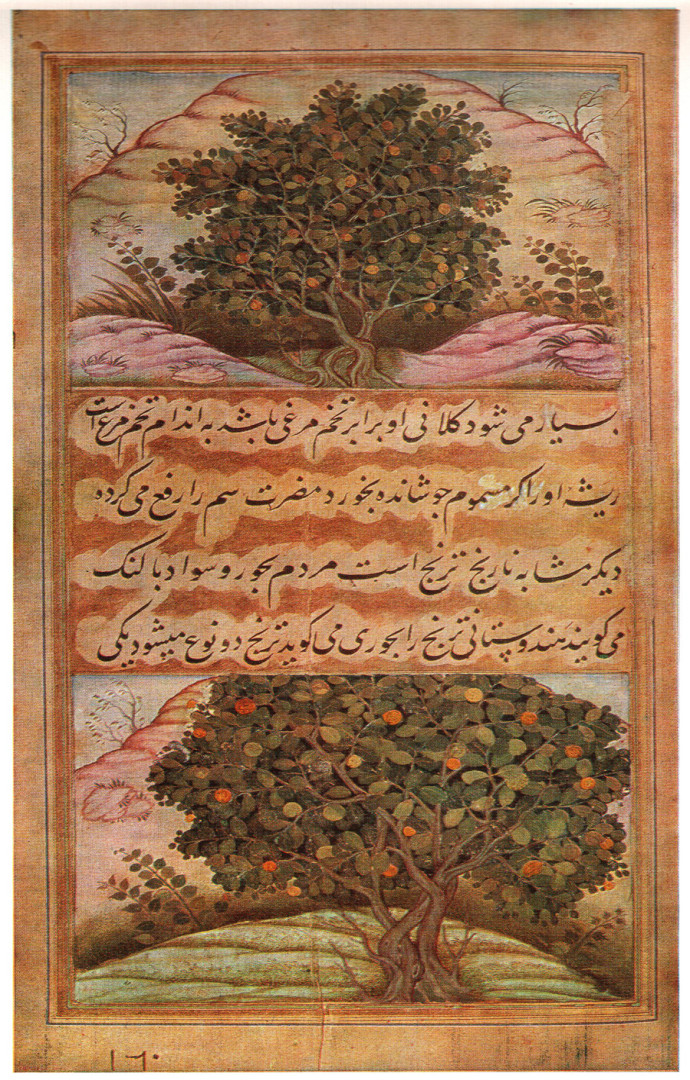 بسیار می شود کلانی او برابر تخم مرغی باشد به اندام تخم مرغ است
ریشه او را اکر مسموم جوشانده بخورد مضرت سم را رفع می کرده
دیکر مشابه نارنج ترنج است مردم بجور و سواد بالنک
می کویند هندوستانی ترنج را بجوری می کوید ترنج دو نوع میشود یکی
۱۶۰